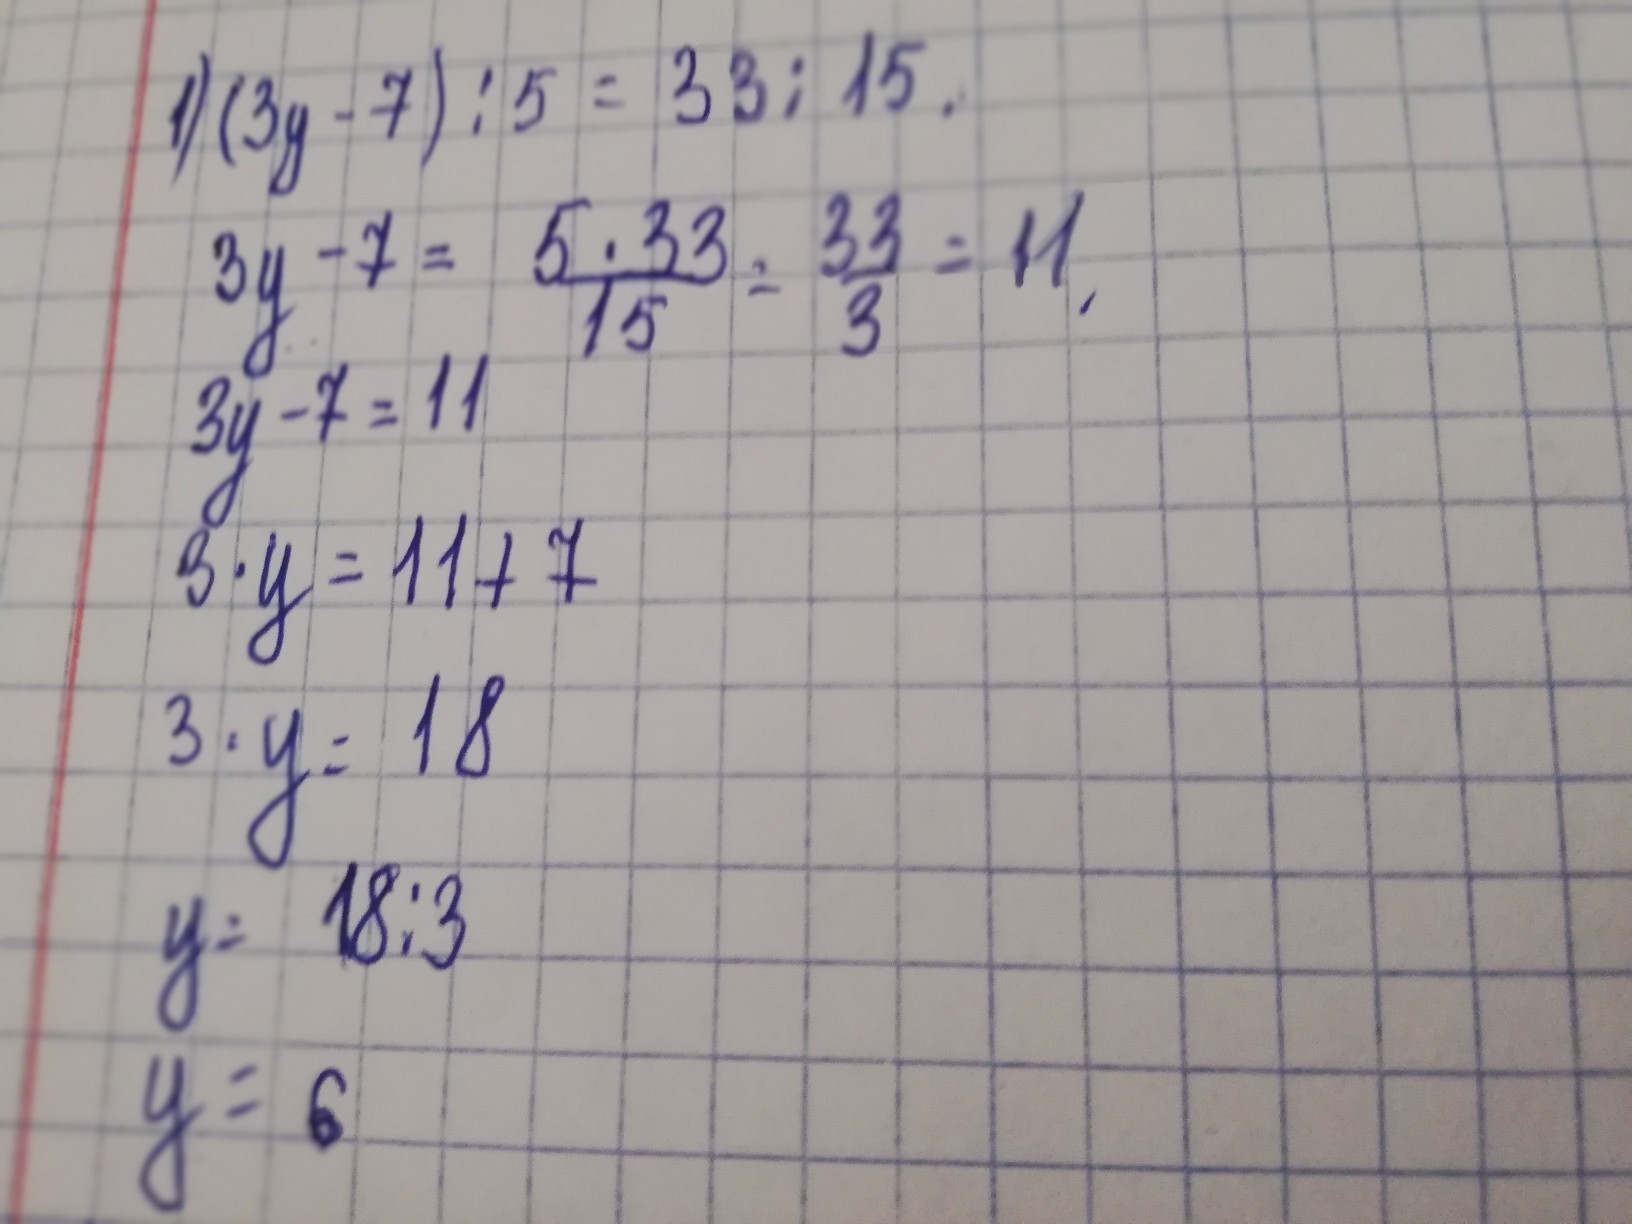 1) (3y - 7) : 5 = 33 : 15.
3y - 7 = 5 · 33 / 15 = 33 / 3 = 11,
3y - 7 = 11
3 · y = 11 + 7
3 · y = 18
y = 18 : 3
y = 6